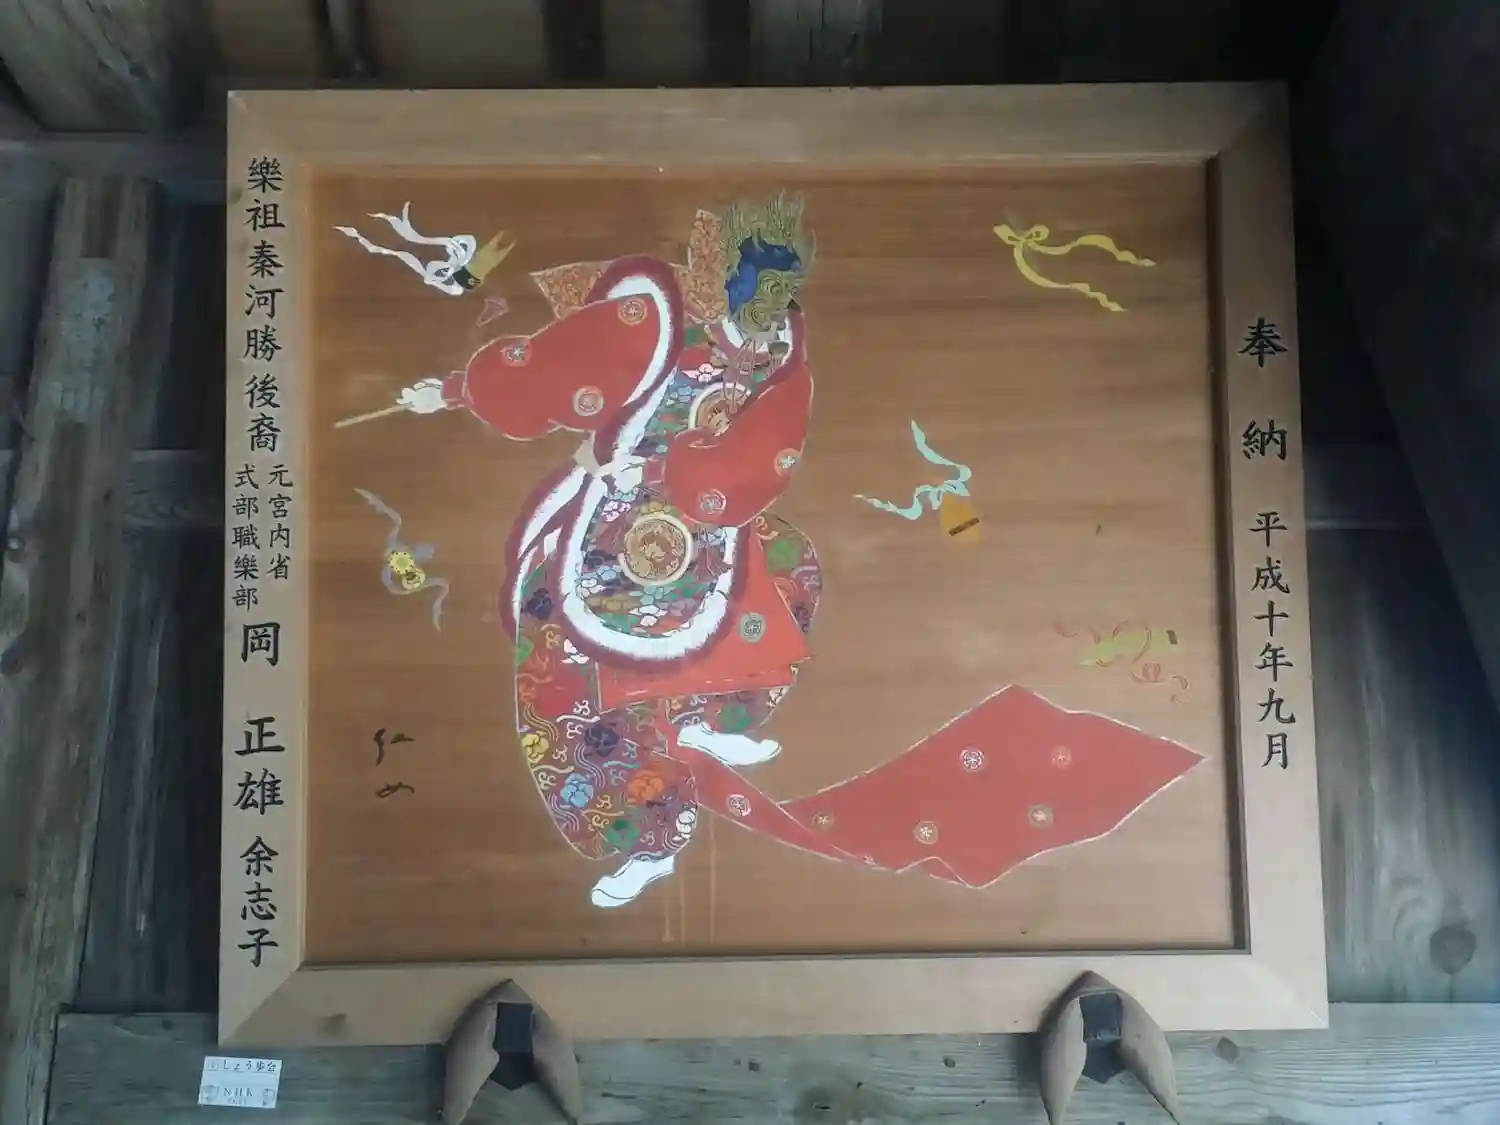 奉納 平成十年九月
樂祖秦河勝後裔
元宮内省
式部職樂部
岡 正雄
余志子
しょう歩会
NHK